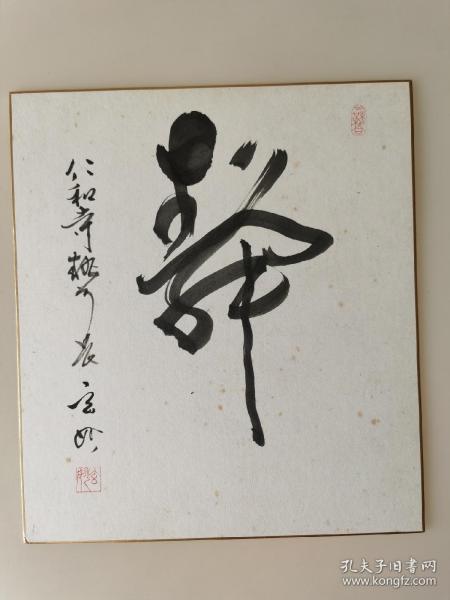 靜
仁和寺執行長玄妙
孔夫子旧书网
www.kongfz.com